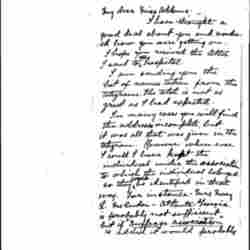 My dear Miss Adkins -
I have thought a
good deal about you and
how you are getting on.
I hope you received the letter
I sent to
I am sending you the
list of names taken from the
telegrams. The total is not as
great as I had expected.
In many cases you will find
the address incomplete, but
it was all that was given in the
telegram. However when ever
I could I have kept the
individual under the association
to which the individual belonged
so identified in that
way. For instance: Miss Mary
L. McLendon - Atlanta Georgia
is probably not sufficient,
but if Suffrage association
is added it would probably